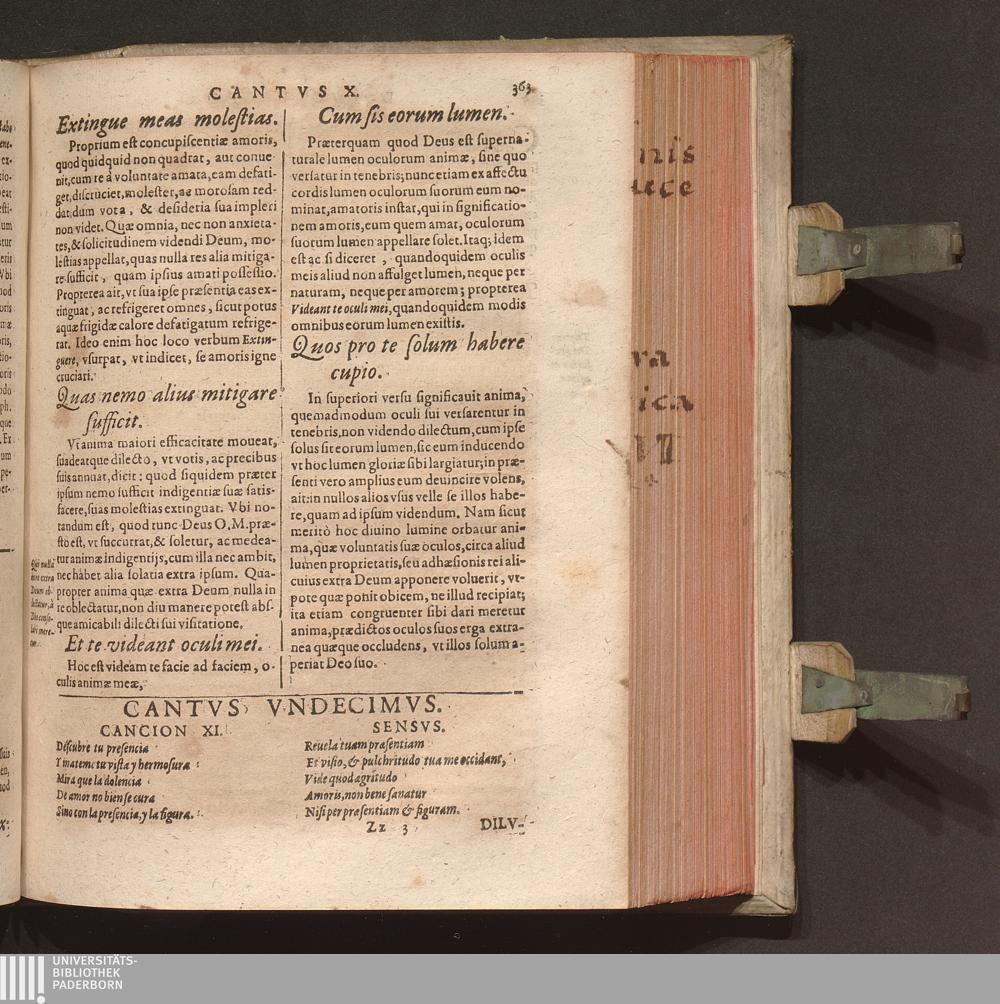 CANTVS X.
363
Extingue meas moleſtias.
Proprium eſt concupiſcentiæ amoris,
quod quidquid non quadrat, aut conue-
nit, cum re à voluntate amata, eam defati-
get, diſcruciet, moleſtet, ac moroſam red-
dat; dum vota, & deſideria ſua impleri
non videt. Quæ omnia, nec non anxieta-
tes, & ſolicitudinem videndi Deum, mo-
leſtias appellat, quas nulla res alia mitiga-
re ſufficit, quam ipſius amati poſſeſſio.
Propterea ait, vt ſua ipſe præſentia eas ex-
tinguat, ac refrigeret omnes, ſicut potus
aquæ frigidæ calore defatigatum refrige-
rat. Ideo enim hoc loco verbum Extin-
guere, vſurpat, vt indicet, ſe amoris igne
cruciari.
Quas nemo alius mitigare
ſufficit.
Vt anima maiori efficacitate moueat,
ſuadeatque dilecto, vt votis, ac precibus
ſuis annuat, dicit: quod ſiquidem præter
ipſum nemo ſufficit indigentiæ ſuæ ſatis-
facere, ſuas moleſtias extinguat. Vbi no-
tandum eſt, quod tunc Deus O. M. præ-
ſtò eſt, vt ſuccurrat, & ſoletur, ac medea-
tur animæ indigentijs, cum illa nec ambit,
nec habet alia ſolatia extra ipſum. Qua-
propter anima quæ extra Deum nulla in
re oblectatur, non diu manere poteſt abſ-
que amicabili dilecti ſui viſitatione.
Et te videant oculi mei.
Hoc eſt videam te facie ad faciem, o-
culis animæ meæ,
Cum ſis eorum lumen.
Præterquam quod Deus eſt ſuperna-
turale lumen oculorum animæ, ſine quo
verſatur in tenebris; nunc etiam ex affectu
cordis lumen oculorum ſuorum eum no-
minat, amatoris inſtar, qui in ſignificatio-
nem amoris, eum quem amat, oculorum
ſuorum lumen appellare ſolet. Itaq; idem
eſt ac ſi diceret, quandoquidem oculis
meis aliud non affulget lumen, neque per
naturam, neque per amorem; propterea
Videant te oculi mei, quandoquidem modis
omnibus eorum lumen exiſtis.
Quos pro te ſolum habere
cupio.
In ſuperiori verſu ſignificauit anima,
quemadmodum oculi ſui verſarentur in
tenebris, non videndo dilectum, cum ipſe
ſolus ſit eorum lumen, ſic eum inducendo
vt hoc lumen gloriæ ſibi largiatur; in præ-
ſenti vero amplius eum deuincire volens,
ait: in nullos alios vſus velle ſe illos habe-
re, quam ad ipſum videndum. Nam ſicut
meritò hoc diuino lumine orbatur ani-
ma, quæ voluntatis ſuæ oculos, circa aliud
lumen proprietatis, ſeu adhæſionis rei ali-
cuius extra Deum apponere voluerit, vt-
pote quæ ponit obicem, ne illud recipiat;
ita etiam congruenter ſibi dari meretur
anima, prædictos oculos ſuos erga extra-
nea quæque occludens, vt illos ſolum a-
periat Deo ſuo.
CANTVS VNDECIMVS.
CANCION XI.
Deſcubre tu preſencia
Y mateme tu viſta y hermoſura
Mira que la dolencia
De amor no bien ſe cura
Sino con la preſencia, y la figura.
SENSVS.
Reuela tuam præſentiam
Et viſio, & pulchritudo tua me occidant,
Vide quod ægritudo
Amoris, non bene ſanatur
Niſi per præſentiam & figuram.
Zz 3
DILV-
UNIVERSITÄTS-
BIBLIOTHEK
PADERBORN